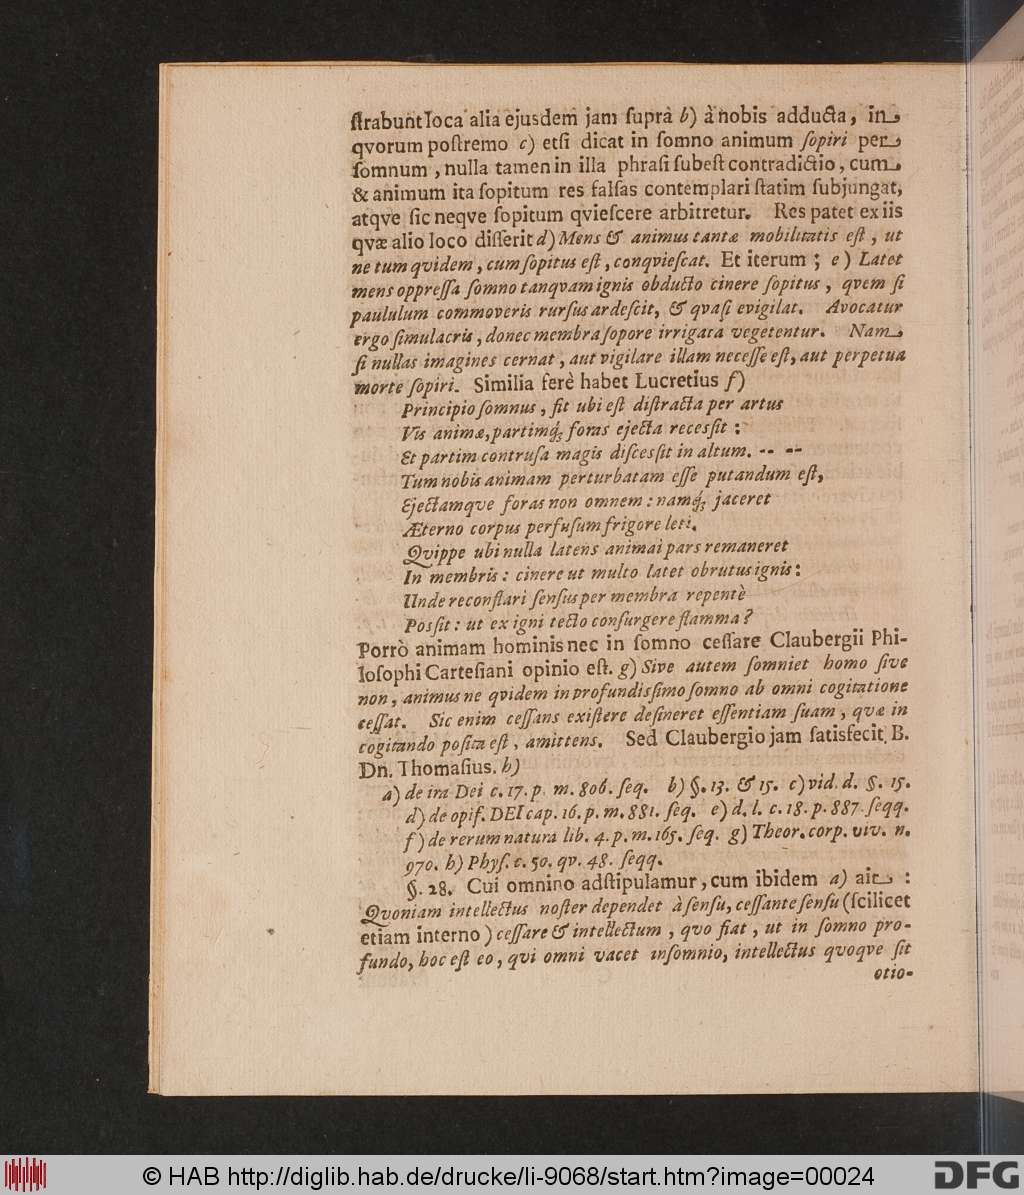 ſtrabunt loca alia ejusdem jam ſuprà b) à nobis adducta, in
qvorum poſtremo c) etſi dicat in ſomno animum ſopiri per
ſomnum, nulla tamen in illa phraſi ſubeſt contradictio, cum
& animum ita ſopitum res falſas contemplari ſtatim ſubjungat,
atqve ſic neqve ſopitum qvieſcere arbitretur. Res patet ex iis
qvæ alio loco diſſerit d) Mens & animus tantæ mobilitatis eſt, ut
ne tum qvidem, cum ſopitus eſt, conqvieſcat. Et iterum; e) Latet
mens oppreſſa ſomno tanqvam ignis obducto cinere ſopitus, qvem ſi
paululum commoveris rurſus ardeſcit, & qvaſi evigilat. Avocatur
ergo ſimulacris, donec membra ſopore irrigata vegetentur. Nam
ſi nullas imagines cernat, aut vigilare illam neceſſe eſt, aut perpetua
morte ſopiri. Similia ferè habet Lucretius f)
Principio ſomnus, fit ubi eſt diſtracta per artus
Vis animæ, partimq́; foras ejecta receſſit:
Et partim contruſa magis diſceſſit in altum. -- --
Tum nobis animam perturbatam eſſe putandum eſt,
Ejectamque foras non omnem: namq́; jaceret
Æterno corpus perfuſum frigore leti.
Qvippe ubi nulla latens animai pars remaneret
In membris: cinere ut multo latet obrutus ignis:
Unde reconflari ſenſus per membra repentè
Poſſit: ut ex igni tecto conſurgere flamma?
Porrò animam hominis nec in ſomno ceſſare Claubergii Phi-
loſophi Carteſiani opinio eſt. g) Sive autem ſomniet homo ſive
non, animus ne qvidem in profundisſimo ſomno ab omni cogitatione
ceſſat. Sic enim ceſſans exiſtere deſineret eſſentiam ſuam, qvæ in
cogitando poſita eſt, amittens. Sed Claubergio jam ſatisfecit B.
Dn. Thomaſius. h)
a) de ira Dei c. 17. p. m. 806. ſeq. b) §. 13. & 15. c) vid. d. §. 15.
d) de opif. DEI cap. 16. p. m. 881. ſeq. e) d. l. c. 18. p. 887. ſeqq.
f) de rerum natura lib. 4. p. m. 165. ſeq. g) Theor. corp. viv. n.
970. h) Phyſ. c. 50. qv. 48. ſeqq.
§. 28. Cui omnino adſtipulamur, cum ibidem a) ait:
Qvoniam intellectus noſter dependet à ſenſu, ceſſante ſenſu (ſcilicet
etiam interno) ceſſare & intellectum, qvo fiat, ut in ſomno pro-
fundo, hoc eſt eo, qvi omni vacet inſomnio, intellectus qvoqve ſit
otio-
© HAB http://diglib.hab.de/drucke/li-9068/start.htm?image=00024
DFG